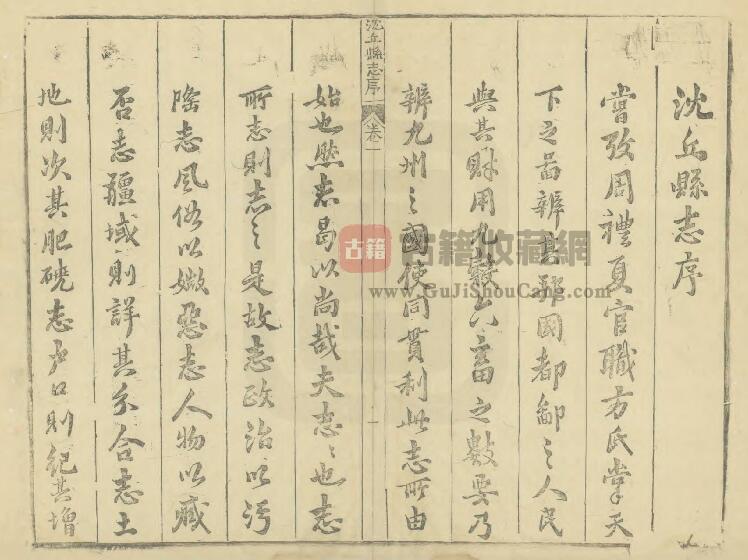 沈丘縣志序
嘗攷周禮夏官職方氏掌天
下之啚辨其邦國都鄙之人民
與其財用九穀六畜之數要乃
辨九州之國使同貫利此志所由
沈丘縣志序
卷一
一
始也然志曷以尚哉夫志志也志
所志則志之是故志政治以污
隆志風俗以媺惡志人物以臧
否志疆域則詳其分合志土
地則次其肥磽志户口則紀其增
古籍
古籍收藏網
www.GuJiShouCang.com